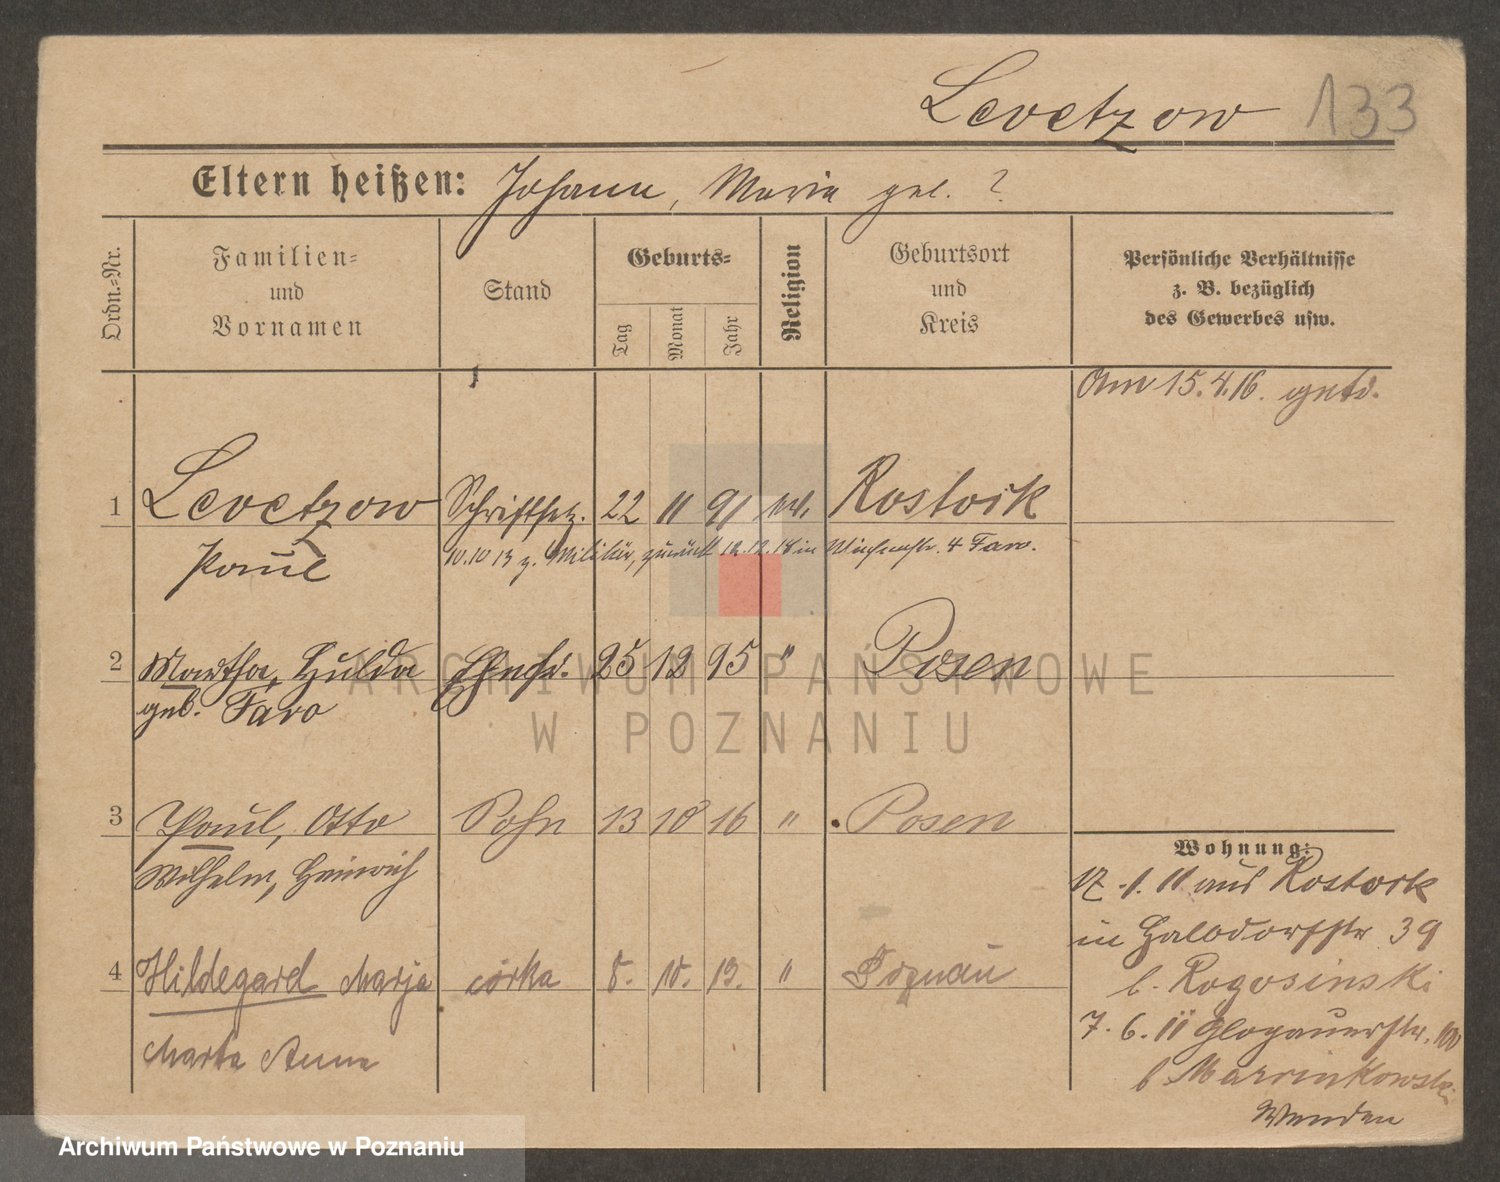 Levetzow 133
Eltern heißen: Johann, Maria geb. ?
Ordn.-Nr.
Familien-
und
Vornamen
Stand
Geburts-
Tag
Monat
Jahr
Religion
Geburtsort
und
Kreis
Persönliche Verhältnisse
z. B. bezüglich
des Gewerbes usw.
Am 15.4.16. getr.
1 Levetzow Schriftsetz. 22 11 91 Rostock
Paul
10.10 13 z. Militär, zurück 12.12.18 in 4 Faro.
2 Martha, Hulda Ehefr. 25 12 95 " Posen
geb. Faro
3 Paul, Otto Sohn 13 10 16 " Posen
Wilhelm, Heinrich
4 Hildegard Marja córka 8. 10. 19. " Poznań
Marta Anna
Wohnung:
17.1.11 aus Rostock
in Halbdorfstr 39
b. Rogosinski
7.6.11 Glogauerstr. 100
b Marcinkowski
Wenden
ARCHIWUM PAŃSTWOWE
W POZNANIU
Archiwum Państwowe w Poznaniu